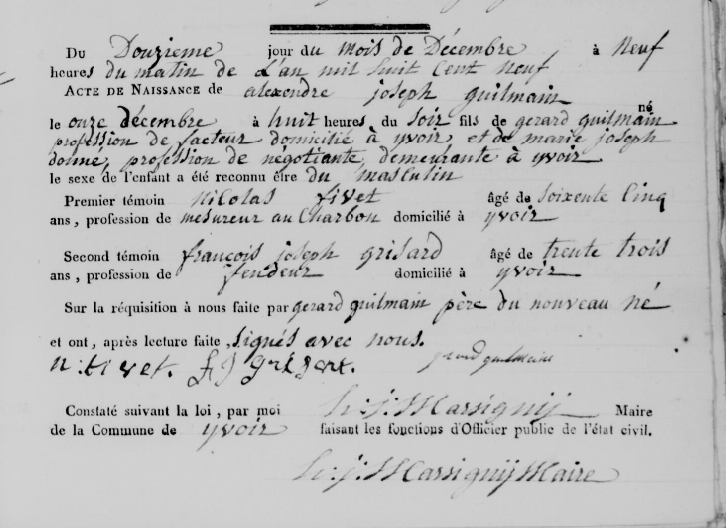 Du Douzieme jour du mois de Décembre à Neuf
heures du matin de L'an mil huit Cent neuf
Acte de Naissance de alexendre joseph guilmain
né
le onze décembre à huit heures du soir fils de gerard guilmain
profession de facteur domicilié à yvoir et de marie joseph
donné, profession de negotiante, demeurante à yvoir
le sexe de l'enfant a été reconnu être du masculin
Premier témoin nicolas tivet âgé de soixente Cinq
ans, profession de mesureur au Charbon domicilié à yvoir
Second témoin françois joseph grisard âgé de trente trois
ans, profession de fendeur domicilié à yvoir
Sur la réquisition à nous faite par gerard guilmain père du nouveau né
et ont, après lecture faite, signés avec nous.
n: tivet. f J grisard. gerard guilmain
Constaté suivant la loi, par moi h: j: Massigny Maire
de la Commune de yvoir faisant les fonctions d'Officier public de l'état civil.
h: j: Massigny Maire